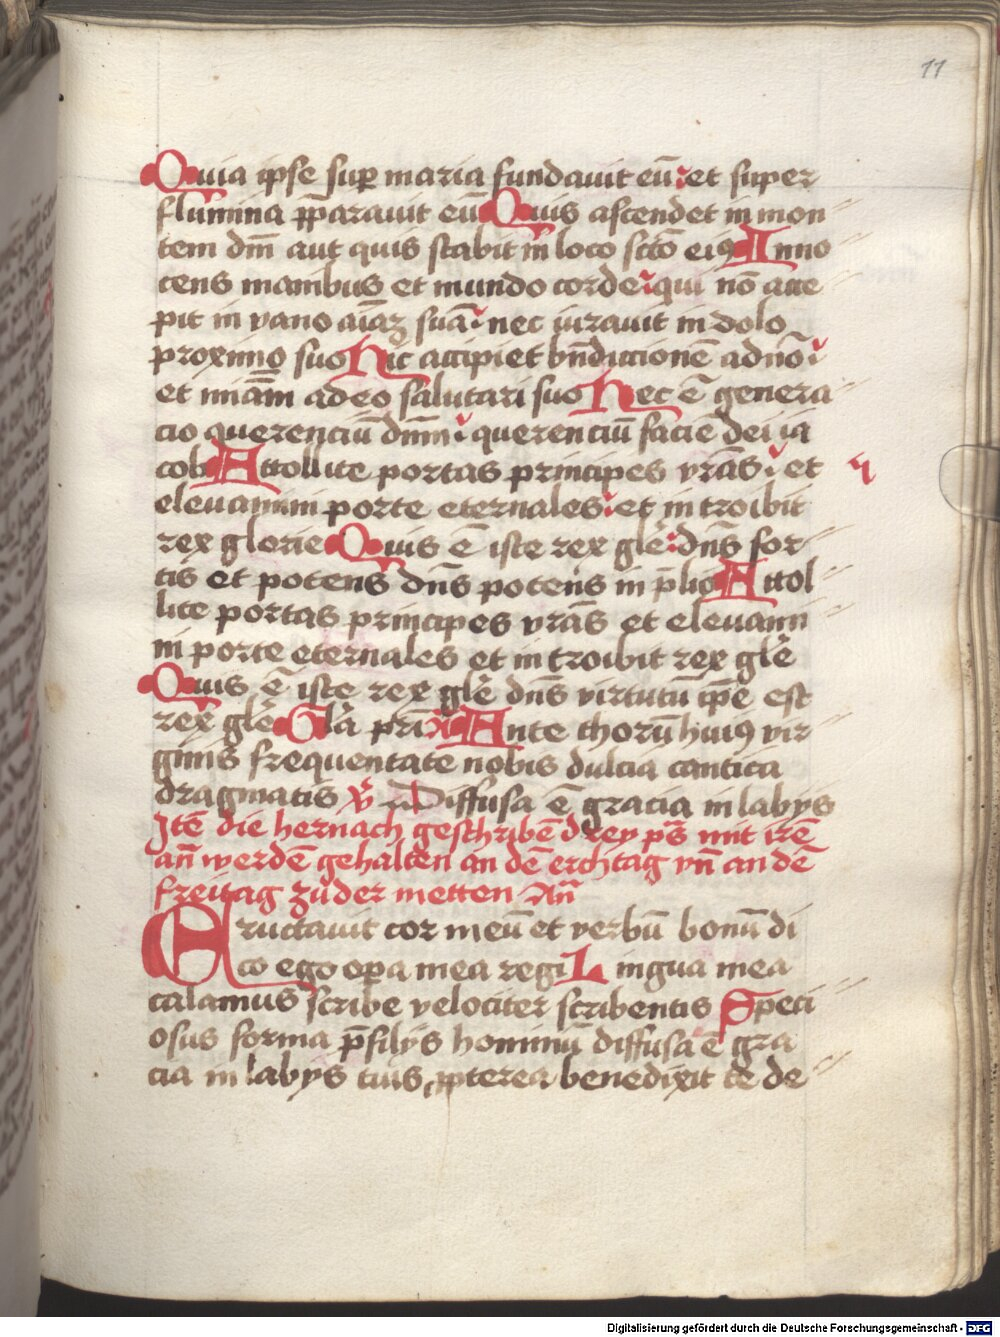 11
Quia ipse sup maria fundavit eū et super
flumina pparavit eū Quis ascendet in mon
tem dm̄ aut quis stabit in loco sc̄tō eiꝯ Inno
cens manibus et mundo corde qui nō acce
pit in vano aīaꝫ suā nec iuravit in dolo
proximo suo Hic accipiet bn̄diccionē a dn̄o
et mi̅am a deo salutari suo Hec ē genera
cio querenciū dnm̄ querenciū faciē dei ia
cob Attollite portas principes vr̄as et
elevamini porte eternales et introibit
rex glorie Quis ē iste rex glē dn̄s for
tis et potens dn̄s potens in p̄lio Attol
lite portas principes vr̄as et elevami
ni porte eternales et introibit rex glē
Quis ē iste rex glē dn̄s virtutū ip̄e est
rex glē Glā pri Añ Ante thorū huiꝯ vir
ginis frequentate nobis dulcia cantica
dragmatis v̄ Diffusa ē gracia in labys
Itē die hernach geschribē drey ps̄ mit irē
an̄ werdē gehalten an dē erchtag vn̄ an dē
freitag zuͦ der metten An̄
Eructavit cor meū et verbū bonū di
co ego opa mea regi Lingua mea
calamus scribe velociter scribentis Speci
osus forma p̄ filys hominū diffusa ē gra
cia in labys tuis ꝓpterea benedixit te de
Digitalisierung gefördert durch die Deutsche Forschungsgemeinschaft - DFG